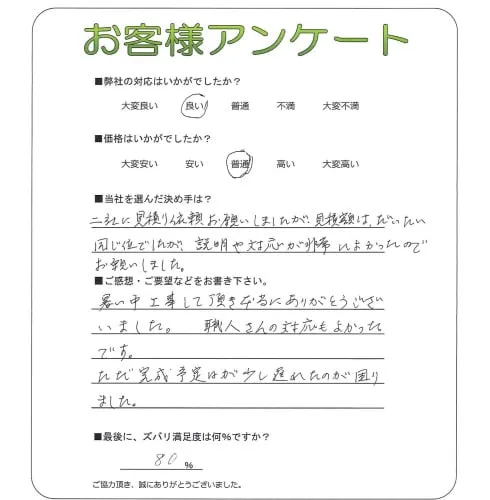 お客様アンケート
■弊社の対応はいかがでしたか?
大変良い 良い 普通 不満 大変不満
■価格はいかがでしたか?
大変安い 安い 普通 高い 大変高い
■当社を選んだ決め手は?
二社に見積り依頼お願いしましたが、見積額は、だいたい
同じ位でしたが、説明や対応が非常によかったので
お願いしました。
■ご感想・ご要望などをお書き下さい。
暑い中工事して頂きありがとうござい
いました。 職人さんの対応もよかった
です。
ただ完成予定日が少し遅れたのが困り
ました。
■最後に、ズバリ満足度は何%ですか?
80 %
ご協力頂き、誠にありがとうございました。